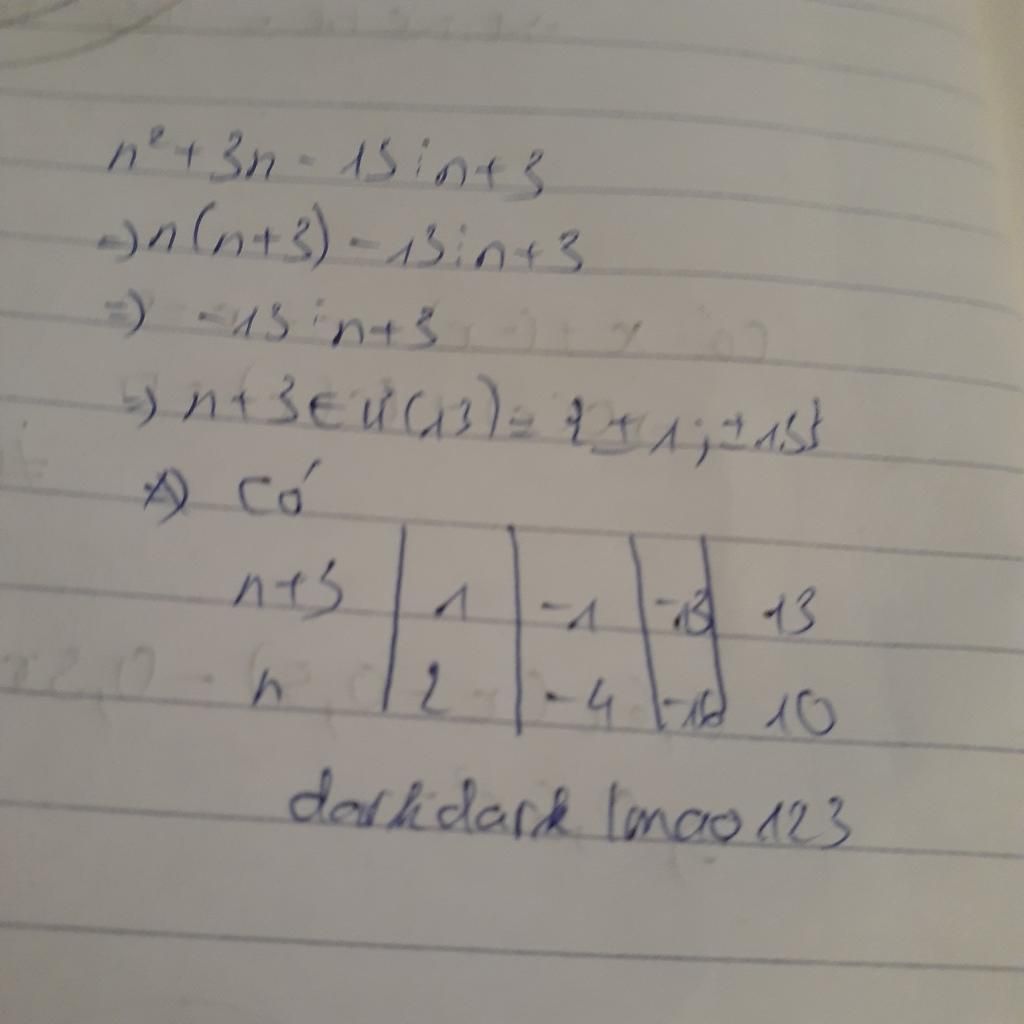 n² + 3n - 13 ⋮ n + 3
⇒ n(n+3) - 13 ⋮ n + 3
⇒ -13 ⋮ n + 3
⇒ n + 3 ∈ Ư(13) = {±1; ±13}
⇒ Có
n+3 | 1 | -1 | -13 | 13
n | 2 | -4 | -16 | 10
darkdark lmao 123